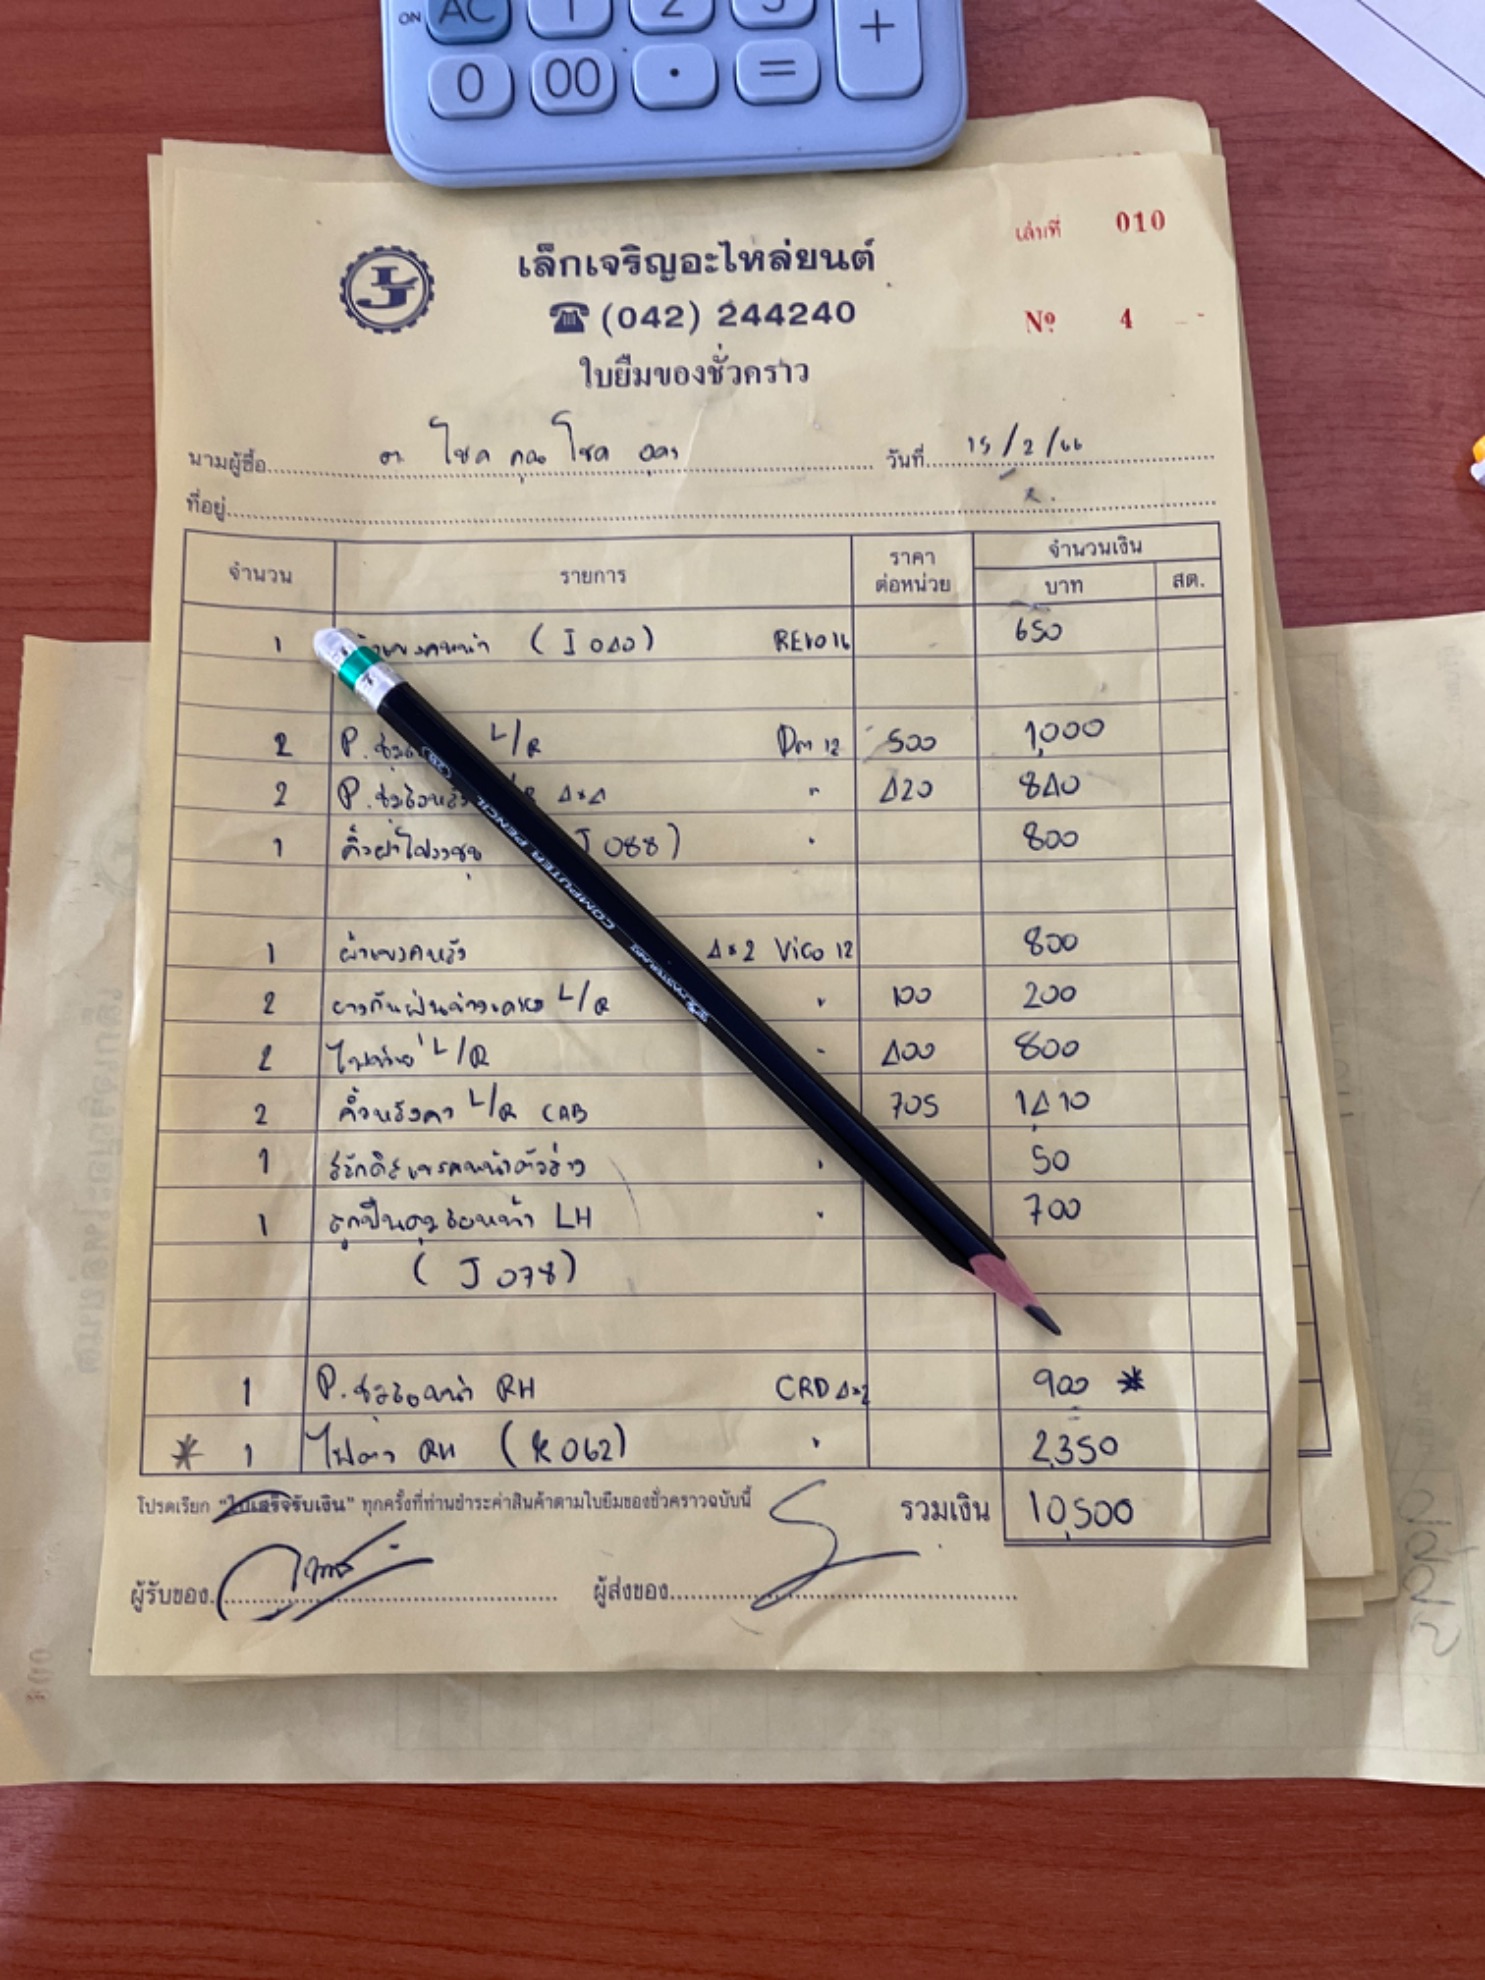 ON AC 1 2 3 +
0 00 . =
เล่มที่ 010
เล็กเจริญอะไหล่ยนต์
(042) 244240
Nº 4
ใบยืมของชั่วคราว
นามผู้ซื้อ โชค คูณ โชค วันที่ 15/2/66
ที่อยู่
จำนวน รายการ ราคาต่อหน่วย จำนวนเงิน
บาท สต.
1 (J 040) REVO 16 650
2 P. L/R Dm 12 500 1,000
2 P. ซุ้มล้อหลัง R 4x4 " 420 840
1 J 088) " 800
1 ผ้าเบรคหลัง 4x2 Vigo 12 800
2 L/R " 100 200
2 L/R " 400 800
2 คิ้วหลังคา L/R CAB 705 1410
1 สลักดิสเบรคหน้าตัวล่าง " 50
1 ลูกปืนดุมล้อหน้า LH " 700
(J 078)
1 P. ซุ้มล้อหน้า RH CRD 4x2 900 *
* 1 ไฟตา RH (K 062) " 2,350
โปรดเรียก "ใบเสร็จรับเงิน" ทุกครั้งที่ท่านชำระค่าสินค้าตามใบยืมของชั่วคราวฉบับนี้ รวมเงิน 10,500
ผู้รับของ ผู้ส่งของ
2B COMPUTER PENCIL MASTERART